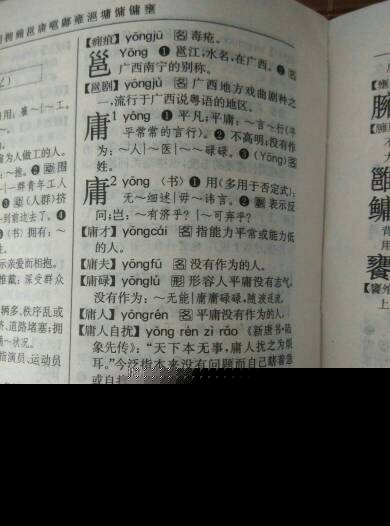 邕庸嗈鄘雍滽墉慵傭壅
【痈疽】yōngjū 名 毒疮。
邕 Yōng ❶ 邕江,水名,在广西。❷ 名
广西南宁的别称。
【邕剧】yōngjù 名 广西地方戏曲剧种之
一,流行于广西说粤语的地区。
庸1 yōng ❶ 平凡;平庸:~言~行(平
平常常的言行)。❷ 不高明;没有作
为:~人|~医|~~碌碌。❸ (Yōng) 名
姓。
庸2 yōng 〈书〉❶ 用(多用于否定式):
无~细述|毋~讳言。❷ 副 表示反
问;岂:~有济乎?|~可弃乎?
【庸才】yōngcái 名 指能力平常或能力低
的人。
【庸夫】yōngfū 名 没有作为的人。
【庸碌】yōnglù 形 形容人平庸没有志气,
没有作为:~无能|庸庸碌碌,随波逐流。
【庸人】yōngrén 名 平庸没有作为的人。
【庸人自扰】yōng rén zì rǎo 《新唐书·陆
象先传》:“天下本无事,庸人扰之为烦
耳。”今泛指本来没有问题而自己瞎着急
或自
用:雇~|~工。
为人做工的人。
一群青年工人
(人群)挤
~到前去了。❹
〈书〉拥有:~
示亲爱而相抱。
推戴:深受群众
辆多,秩序乱或
,道路堵塞;拥
~状况。
指演员、运动员
臃
雝
鳙
饔